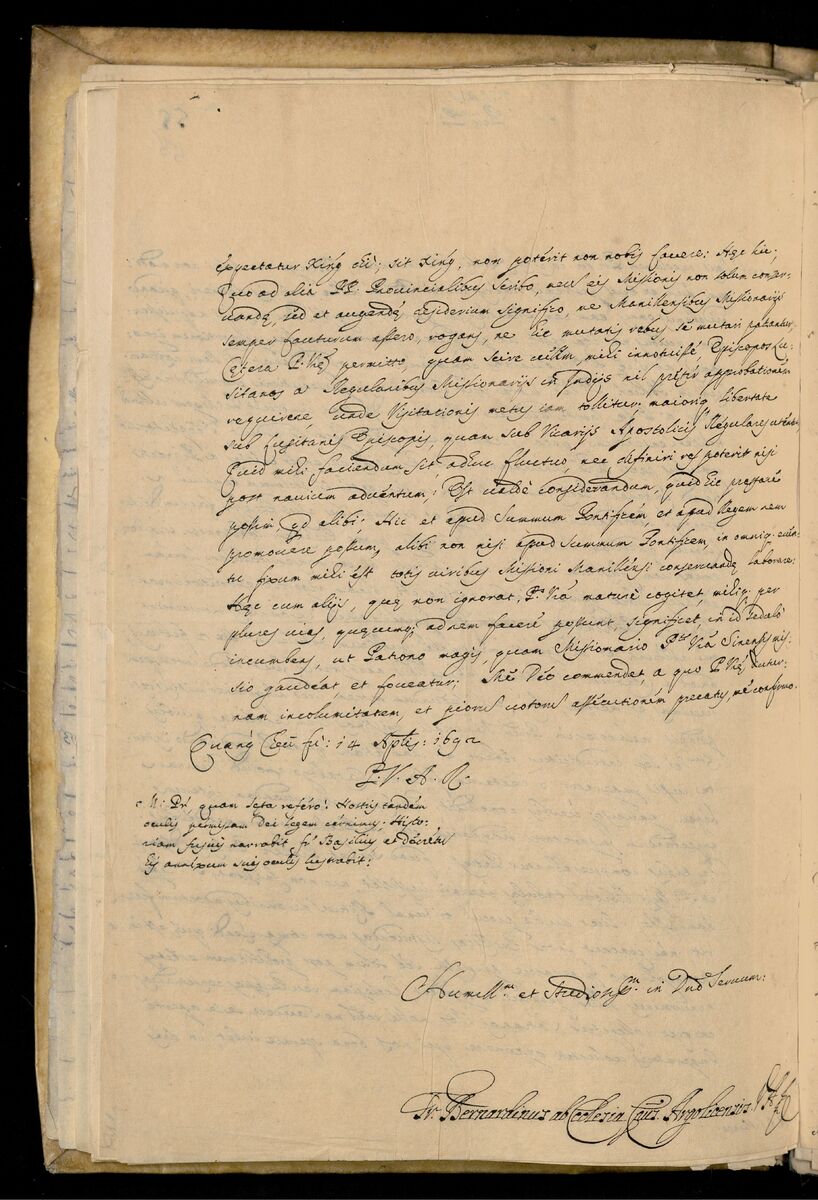 expectatur King cû; sit King, non poterit non nobis favere: Hæc hic;
Quo ad alia PP. Provincialibus scribo, neus eis Missionis non solum conser-
vandę, sed et augendę desiderium significo, me Manilensibus Missionarijs
semper fauturum assero, rogans, ne hic mutatis rebus se mutari patiantur,
Cętera P. Vrę permitto, quam scire velim, mihi innotuisse, Episcopos Lu-
sitanos a Regularibus Missionarijs in Indijs nil pręter approbationem
requirere, unde Visitationis metus iam tollitur, maioriq. libertate
sub Lusitanis Episcopis, quam sub Vicarijs Apostolicis Regulares
Quid mihi faciendum sit adhuc fluctuo, nec definiri res poterit nisi
post navium adventum; Est valdè considerandum, quid hic pręstare
possim, quid alibi; Hic et apud Summum Pontificem, et apud Regem rem
promovere possum, alibi non nisi apud Summum Pontificem, in omniq. even-
tu fixum mihi est totis viribus Missioni Manilensi conservandę laborare:
Hęc cum alijs, quę non ignorat, P. Vra maturè cogitet, mihiq. per
plures vias, quęcumq; ad rem facere possunt, significet, in id sedulò
incumbens, ut Patrono magis, quam Missionario Pte Vra Sinensis mis-
sio gaudeat, et foveatur; Me Deo commendet a quo P. Vrę diutur-
nam incolumitatem, et piorum votorum assecutionem precatus, me confirmo.
Cuang Cheu fu: 14 Aplis: 1692
P. V. A. R.
N: Pr quam lęta refero! Hostris tandem
oculis permissam Dei legem cernimus; Histo-
riam fusius narrabit fr Basilius et decretum
his annexum suis oculis lustrabit:
Humillm et Studiosissm in Dno Servum:
Fr. Bernardinus ab Ecclesia Epûs. Argolicensis.